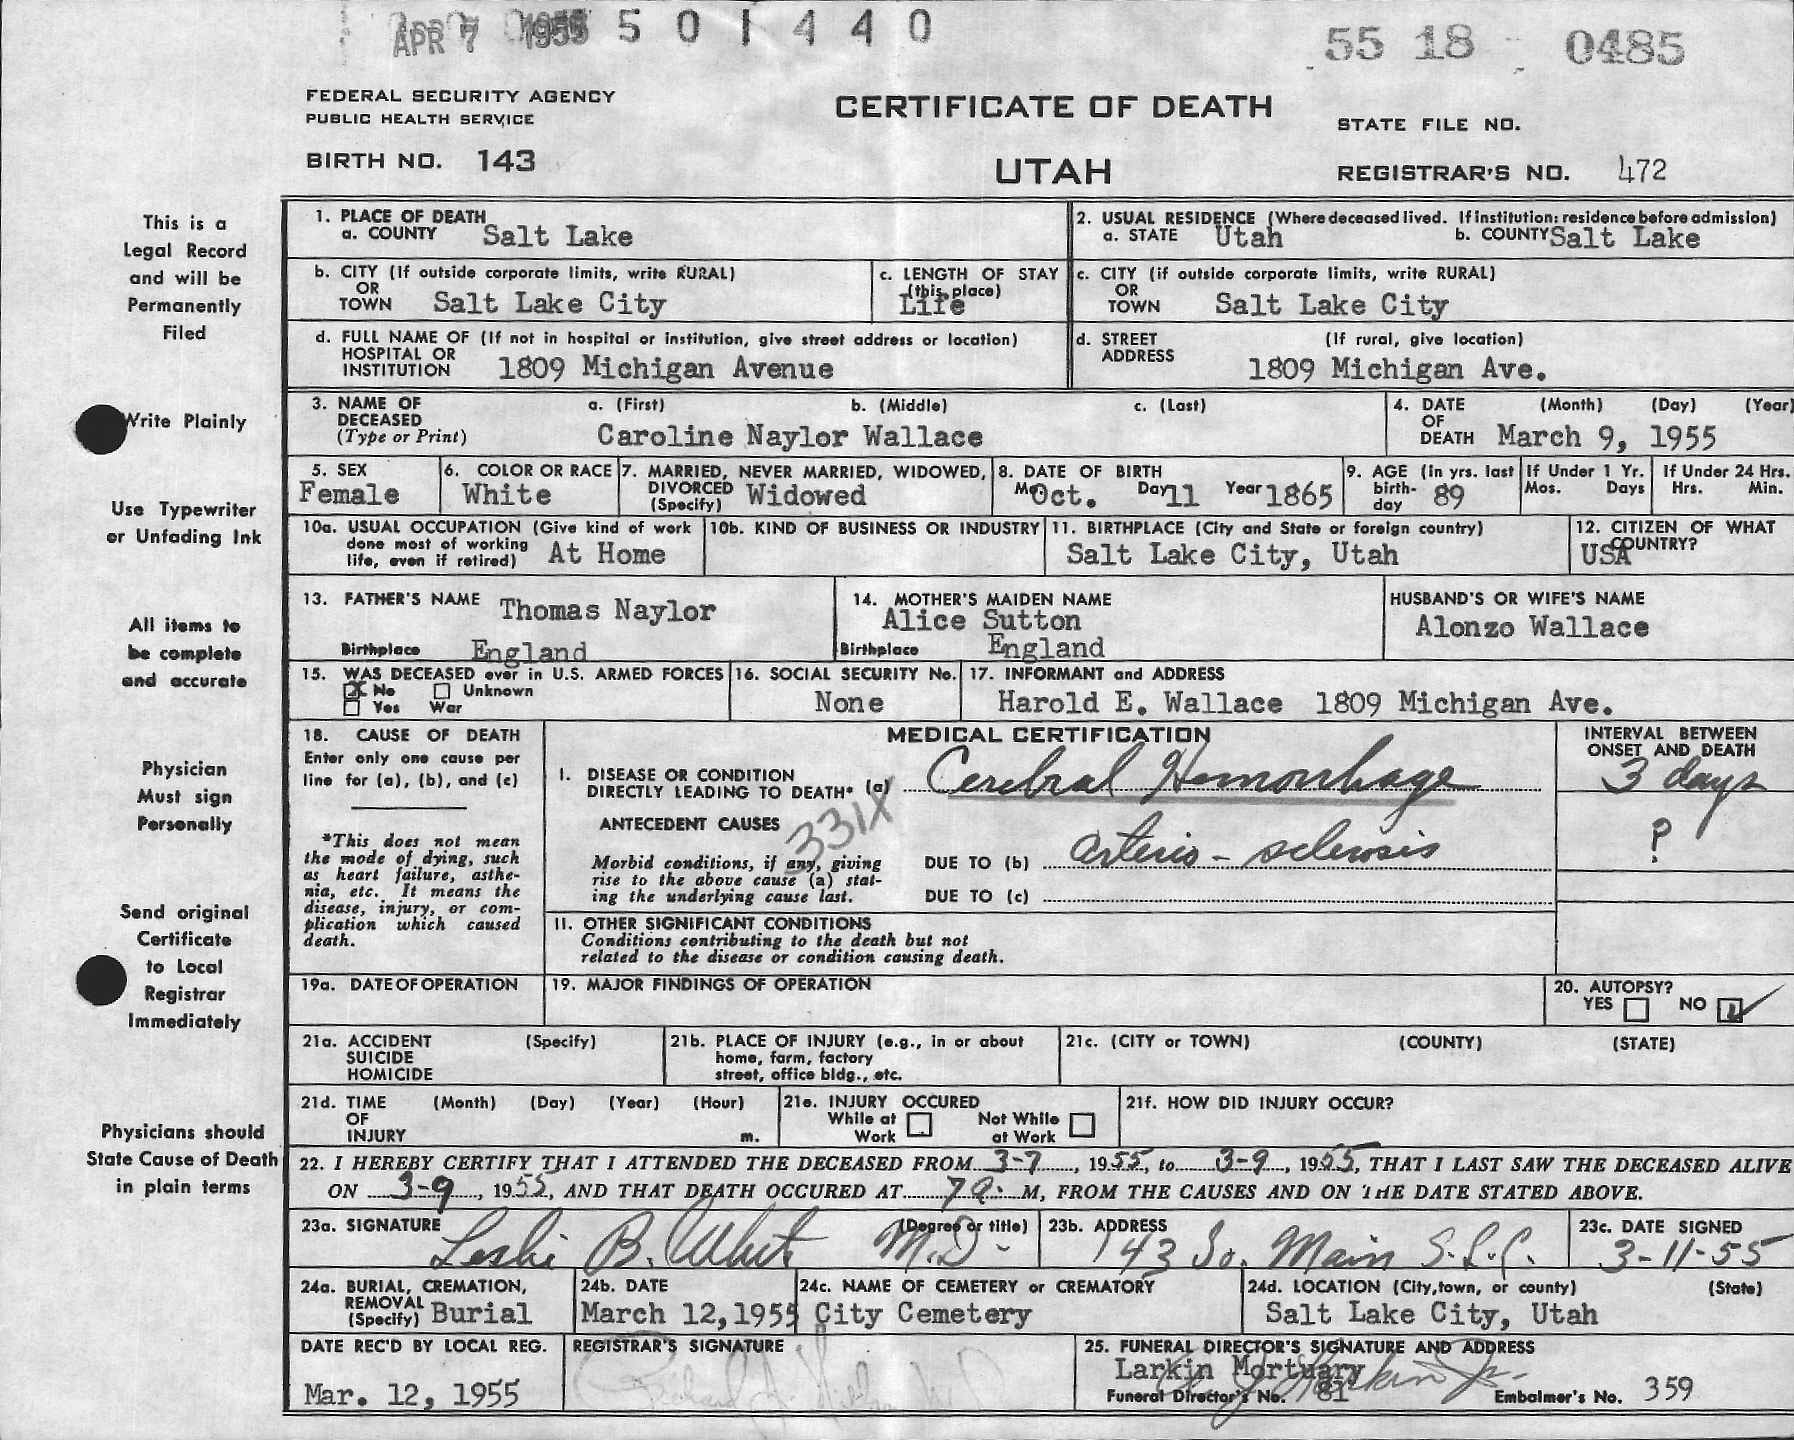 APR 7 1955 501440
55 18 0485
FEDERAL SECURITY AGENCY
PUBLIC HEALTH SERVICE
CERTIFICATE OF DEATH
STATE FILE NO.
BIRTH NO. 143
UTAH
REGISTRAR'S NO. 472
This is a
Legal Record
and will be
Permanently
Filed
Write Plainly
Use Typewriter
or Unfading Ink
All items to
be complete
and accurate
Physician
Must sign
Personally
Send original
Certificate
to Local
Registrar
Immediately
Physicians should
State Cause of Death
in plain terms
1. PLACE OF DEATH
a. COUNTY Salt Lake
2. USUAL RESIDENCE (Where deceased lived. If institution: residence before admission)
a. STATE Utah b. COUNTY Salt Lake
b. CITY (If outside corporate limits, write RURAL)
OR
TOWN Salt Lake City
c. LENGTH OF STAY
(this place)
Life
c. CITY (if outside corporate limits, write RURAL)
OR
TOWN Salt Lake City
d. FULL NAME OF (If not in hospital or institution, give street address or location)
HOSPITAL OR
INSTITUTION 1809 Michigan Avenue
d. STREET (If rural, give location)
ADDRESS
1809 Michigan Ave.
3. NAME OF a. (First) b. (Middle) c. (Last)
DECEASED
(Type or Print) Caroline Naylor Wallace
4. DATE (Month) (Day) (Year)
OF
DEATH March 9, 1955
5. SEX
Female
6. COLOR OR RACE
White
7. MARRIED, NEVER MARRIED, WIDOWED,
DIVORCED Widowed
(Specify)
8. DATE OF BIRTH
Mo Oct. Day 11 Year 1865
9. AGE (In yrs. last
birth- 89
day
If Under 1 Yr.
Mos. Days
If Under 24 Hrs.
Hrs. Min.
10a. USUAL OCCUPATION (Give kind of work
done most of working
life, even if retired) At Home
10b. KIND OF BUSINESS OR INDUSTRY
11. BIRTHPLACE (City and State or foreign country)
Salt Lake City, Utah
12. CITIZEN OF WHAT
COUNTRY?
USA
13. FATHER'S NAME Thomas Naylor
Birthplace England
14. MOTHER'S MAIDEN NAME
Alice Sutton
Birthplace England
HUSBAND'S OR WIFE'S NAME
Alonzo Wallace
15. WAS DECEASED ever in U.S. ARMED FORCES
X No Unknown
Yes War
16. SOCIAL SECURITY No.
None
17. INFORMANT and ADDRESS
Harold E. Wallace 1809 Michigan Ave.
18. CAUSE OF DEATH
Enter only one cause per
line for (a), (b), and (c)
*This does not mean
the mode of dying, such
as heart failure, asthe-
nia, etc. It means the
disease, injury, or com-
plication which caused
death.
MEDICAL CERTIFICATION
INTERVAL BETWEEN
ONSET AND DEATH
I. DISEASE OR CONDITION
DIRECTLY LEADING TO DEATH* (a) Cerebral Hemorrhage
3 days
331X
ANTECEDENT CAUSES
Morbid conditions, if any, giving
rise to the above cause (a) stat-
ing the underlying cause last.
DUE TO (b) arterio-sclerosis
?
DUE TO (c)
II. OTHER SIGNIFICANT CONDITIONS
Conditions contributing to the death but not
related to the disease or condition causing death.
19a. DATE OF OPERATION
19. MAJOR FINDINGS OF OPERATION
20. AUTOPSY?
YES NO
21a. ACCIDENT (Specify)
SUICIDE
HOMICIDE
21b. PLACE OF INJURY (e.g., in or about
home, farm, factory
street, office bldg., etc.
21c. (CITY or TOWN) (COUNTY) (STATE)
21d. TIME (Month) (Day) (Year) (Hour)
OF
INJURY m.
21e. INJURY OCCURED
While at Not While
Work at Work
21f. HOW DID INJURY OCCUR?
22. I HEREBY CERTIFY THAT I ATTENDED THE DECEASED FROM 3-7, 1955, to 3-9, 1955, THAT I LAST SAW THE DECEASED ALIVE
ON 3-9, 1955, AND THAT DEATH OCCURED AT 7 a. M, FROM THE CAUSES AND ON THE DATE STATED ABOVE.
23a. SIGNATURE (Degree or title)
Leslie B. White M.D.
23b. ADDRESS
143 So. Main S.L.C.
23c. DATE SIGNED
3-11-55
24a. BURIAL, CREMATION,
REMOVAL
(Specify) Burial
24b. DATE
March 12, 1955
24c. NAME OF CEMETERY or CREMATORY
City Cemetery
24d. LOCATION (City, town, or county) (State)
Salt Lake City, Utah
DATE REC'D BY LOCAL REG.
Mar. 12, 1955
REGISTRAR'S SIGNATURE
25. FUNERAL DIRECTOR'S SIGNATURE AND ADDRESS
Larkin Mortuary
Funeral Director's No. 81 Embalmer's No. 359